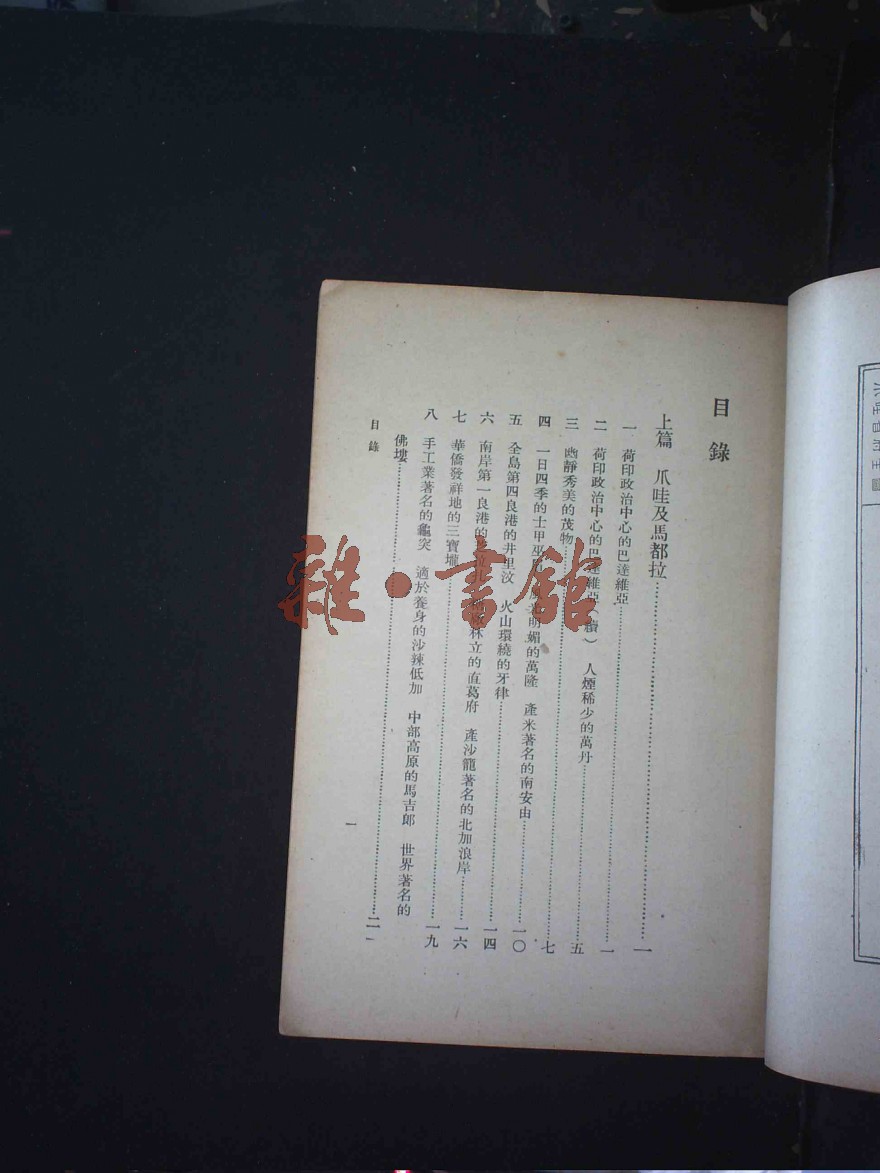 目錄
上篇 爪哇及馬都拉……一
一 荷印政治中心的巴達維亞……一
二 荷印政治中心的巴達維亞(續) 人煙稀少的萬丹……五
三 幽靜秀美的茂物……七
四 一日四季的士甲巫 明媚的萬隆 產米著名的南安由……一〇
五 全島第四良港的井里汶 火山環繞的牙律……一四
六 南岸第一良港的 林立的直葛府 產沙籠著名的北加浪岸……一六
七 華僑發祥地的三寶壠……一九
八 手工業著名的龜突 適於養身的沙辣低加 中部高原的馬吉郎 世界著名的
佛壊……二一
目錄
一
雜·書館